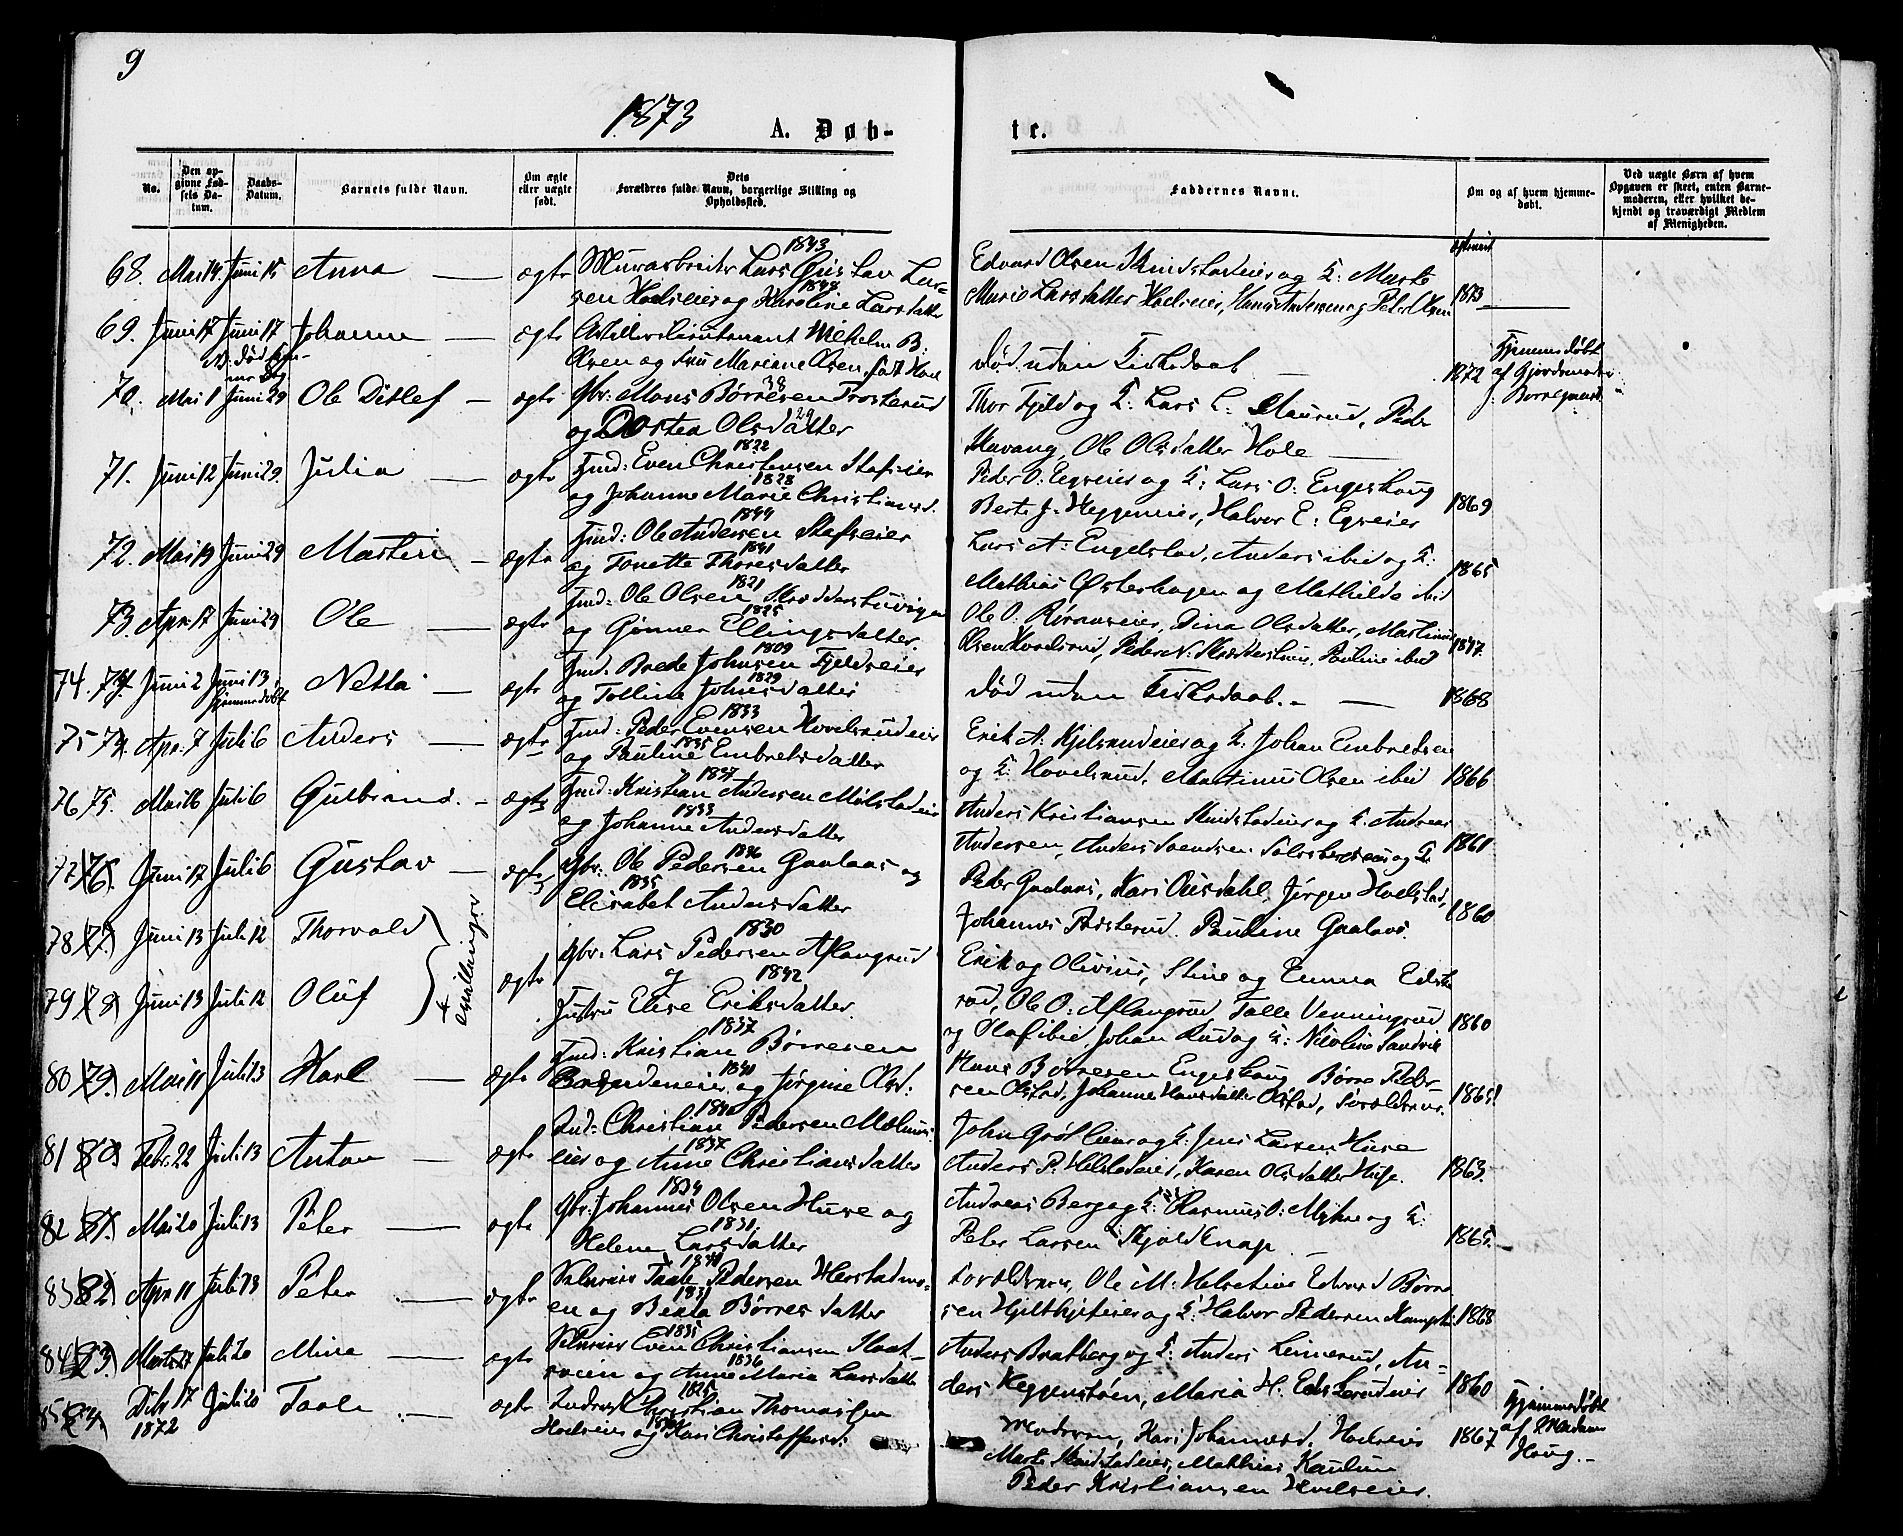 9
1873
A. Døb-
te.
No.
Den op-
givne Fød-
sels Da-
tum.
Daabs-
Datum.
Barnets fulde Navn.
Om ægte
eller uægte
født.
Dets
Forældres fulde Navn, borgerlige Stilling og
Opholdssted.
Faddernes Navne.
Om og af hvem hjemme-
døbt.
Ved uægte Børn af hvem
Opgaven er skeet, enten Barne-
moderen, eller hvilket be-
kjendt og troværdigt Medlem
af Menigheden.
68. Mai 14. Juni 15 Anna — ægte Murarbeider Lars Gustav Lar- 1843
sen Hoelseier og Karoline Larsdatter
Edvard Olsen Skindstadeier og Marte
Marie Larsdatter Hoelseier, Andersen og Peter Olsen 1873
69. Juni 17 Juni 17 Johanne ægte Artillerilieutenant Wilhelm B.
Olsen og Fru Mariane Olsen født
død uden Kirkedaab — 1872
Hjemmedøbt
af Gjordemoder
70. Mai 1 Juni 29 Ole Ditlef — ægte Gbr. Mons Børresen Trosterud 38
og Dortea Olsdatter 29
Thor Fjeld og K: Lars L. Maurud, Peder
Havang, Ole Olsdatter Hole —
71. Juni 12 Juni 29. Julia — ægte Ind: Even Christensen Stafseier 1822
og Johanne Marie Christiansd. 1828
Peder O. Egseier og K: Lars O. Engeskoug
Berte J. Heggeneier, Halvor E. Egseier 1869
72. Mai 19 Juni 29 Martin — ægte Ind: Ole Andersen Stafseier 1844
og Tonette Thoresdatter 1841
Lars A. Engelstad, Anders ibid og K:
Mathias Østerhagen og Mathilde ibid 1865
73 Apr. 17 Juni 29 Ole — ægte Ind: Ole Olsen 1821
og Gunner Ellingsdatter. 1825
Ole O. Røraaseier, Dina Olsdatter, Martinus
Olsen Hovelsrud, Peder N. Pauline ibid 1847.
74. Juni 2 Juni 13 Netta — ægte Ind. Brede Johnsen Fjeldseier 1809
hjemmedøbt
og Tolline Johnsdatter 1829
død uden Kirkedaab. — 1868
75 74. Apr. 7 Juli 6 Anders — ægte Ind: Peder Evensen Hovelsrudeier 1833
og Pauline Embretsdatter 1835
Erik A. Kjelsrudeier og K: Johan Embretsen
og K: Hovelsrud, Martinus Olsen ibid 1866
76 75. Mai 16 Juli 6 Gulbrand. — ægte Ind: Kristian Andersen Mølstadeier 1837
og Johanne Andersdatter 1833
Anders Kristiansen Skindstadeier og K. Andreas
Andersen, Anders Svendsen Solsbergseier og K. 1861
77 76. Juni 17 Juli 6 Gustav — ægte Gbr. Ole Pedersen Gaalaas og 1836
Elisabet Andersdatter 1835
Peder Gaalaas, Kari Ousdahl, Jørgen Hoelstad,
Johannes Trosterud. Pauline Gaalaas. 1860
78 77. Juni 13 Juli 12 Thorvald
79 78 Juni 13 Juli 12 Oluf
tvillinger
ægte Gbr. Lars Pedersen Aflangrud 1830
og 1842
Hustru Elise Eriksdatter.
Erik og Olivius, Stine og Emma Edste-
rud, Ole O. Aflangrud, Talle Venningrud
og Olaf ibid, Johan Rud og K: Nicoline Sandvik 1860
80 79. Mai 11 Juli 13 Karl — ægte Ind: Kristian Børresen 1837
og Jørgine Olsd. 1840
Hans Børresen Engeskoug, Børre Peder-
sen Olstad, Johanne Hansdatter Olstad, 1865!
81 80. Febr. 22 Juli 13 Anton — ægte Ind: Christian Pedersen 1840
eier og Anne Christiansdatter 1837
John Grøtlien og K: Jens Larsen Huse
Anders P. Helstadeier, Karen Olsdatter Huse. 1863.
82 81. Mai 20 Juli 13 Peter — ægte Gbr. Johannes Olsen Huse og 1834
Helene Larsdatter 1831.
Andreas Berg og K: Rasmus O. Myhre og K:
Peter Larsen Skjoldknap. — 1865.
83 82 Apr. 11 Juli 13 Peter — ægte Selveier Taale Pedersen Herstadmo- 1840
en og Berta Børresdatter 1831
Foreldrene, Ole M. Helsetine, Edvard Børre-
sen og K: Halvor Pedersen 1868
84 83 Marts 27 Juli 20 Mina — ægte Selveier Even Christiansen Skaat- 1835
sveen og Anne Maria Larsdatter 1836
Anders Bratberg og K: Anders Leinerud, An-
ders Heggenstøen, Maria H. 1860
85 84. Dcb. 17 Juli 20 Taale — ægte Inderst Christian Thomassen 1825
1872
Hoelseier og Kari Christoffersd.
Moderen, Kari Johannesd. Hoelseier
Marte Skindstadeier, Mathias Kaulum
Peder Kristiansen Hoelseier. 1867
Hjemmedøbt
af Madam
Houg. —